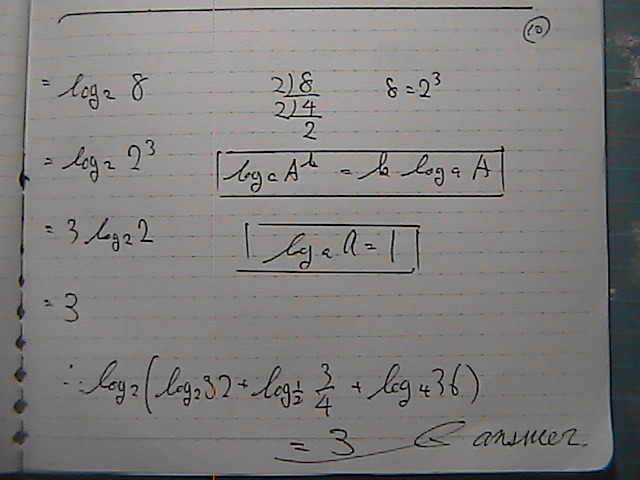 (10)
= log₂ 8 2)8 8 = 2³
2)4
2
= log₂ 2³ logₐ Aᵏ = k logₐ A
= 3 log₂ 2 logₐ a = 1
= 3
∴ log₂ (log₂ 32 + log½ 3/4 + log₄ 36)
= 3 ← answer.